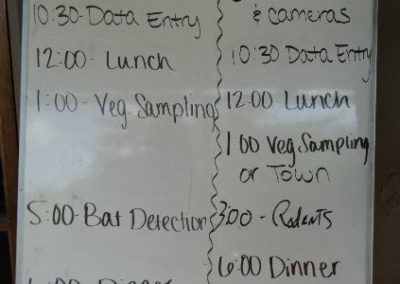 10:30-Data Entry
12:00-Lunch
1:00-Veg. Sampling
5:00-Bat Detection
Dinner
& cameras
10:30 Data Entry
12:00 Lunch
1 00 Veg. Sampling
or Town
3:00-Rodents
6:00 Dinner